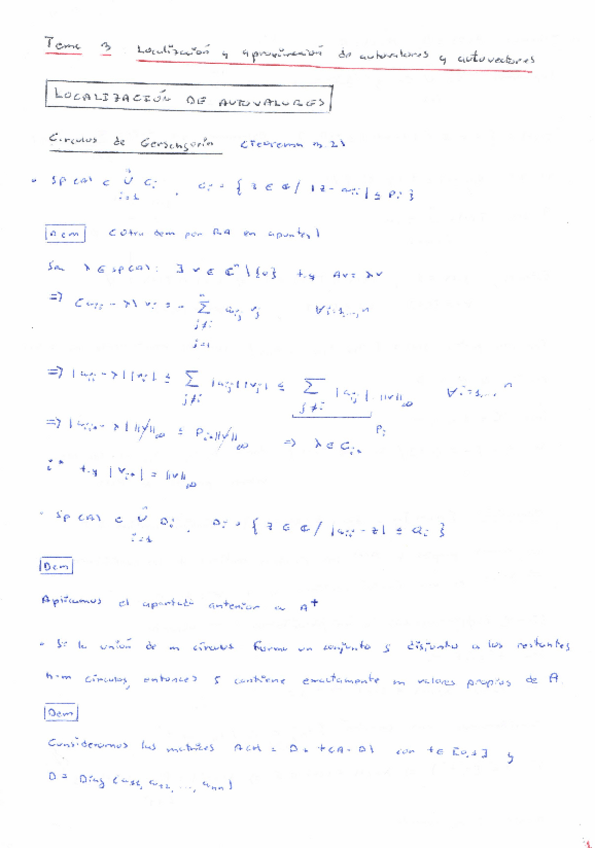 Tema 3 Localización y aproximación de autovalores y autovectores
LOCALIZACIÓN DE AUTOVALORES
Círculos de Gerschgorin (Teorema 3.2)
• Sp(A) ⊂ ⋃_{i=1}^n C_i , C_i = { z ∈ ℂ / |z - a_ii| ≤ P_i }
Dem (Otra dem por RA en apuntes)
Sea λ ∈ Sp(A): ∃ v ∈ ℂ^n \ {0} t.q Av = λv
⇒ (a_ii - λ) v_i = - ∑_{j≠i, j=1}^n a_ij v_j ∀i=1,...,n
⇒ |a_ii - λ| |v_i| ≤ ∑_{j≠i} |a_ij| |v_j| ≤ ∑_{j≠i} |a_ij| · ||v||_∞ ∀i=1,...,n
P_i
⇒ |a_ii* - λ| ||v||_∞ ≤ P_i* ||v||_∞ ⇒ λ ∈ C_i*
i* t.q |v_i*| = ||v||_∞
• Sp(A) ⊂ ⋃_{i=1}^n D_i , D_i = { z ∈ ℂ / |a_ii - z| ≤ Q_i }
Dem
Aplicamos el apartado anterior a A^t
• Si la unión de m círculos forma un conjunto S disjunto a los restantes
n-m círculos, entonces S contiene exactamente m valores propios de A.
Dem
Consideramos las matrices A(t) = D + t(A-D) con t ∈ [0,1] y
D = Diag (a_11, a_22, ..., a_nn)
1